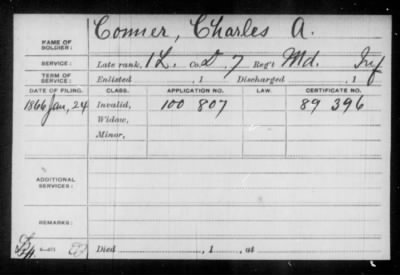 NAME OF SOLDIER: Conner, Charles A.
SERVICE: Late rank, 1 L. Co. D, 7 Reg't Md. Inf
TERM OF SERVICE: Enlisted , 1 Discharged , 1
DATE OF FILING. CLASS. APPLICATION NO. LAW. CERTIFICATE NO.
1866 Jan, 24 Invalid, 100 807 89 396
Widow,
Minor,
ADDITIONAL SERVICES:
REMARKS:
Died , 1 , at